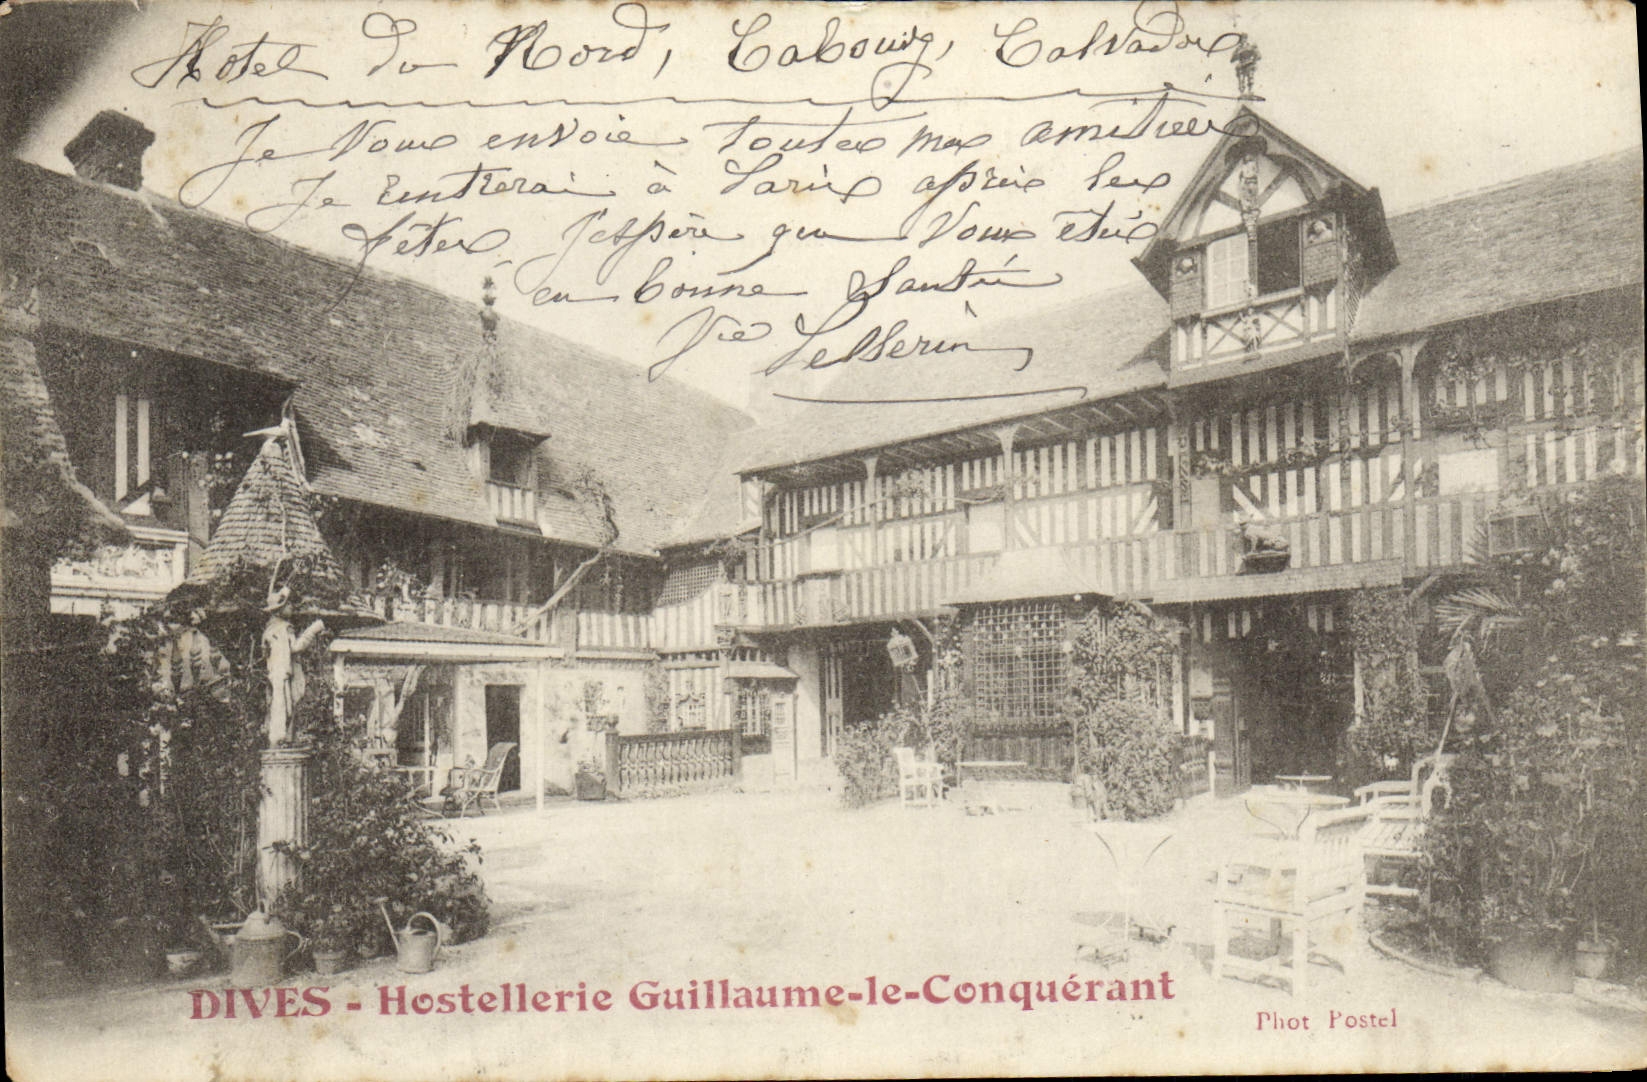 Hotel du Nord, Cabourg, Calvados
Je vous envoie toutes mes amitiées
Je rentrerai à Paris après les
fêtes, j'espère que vous êtes
en bonne santée
Vve
DIVES - Hostellerie Guillaume-le-Conquérant
Phot Postel